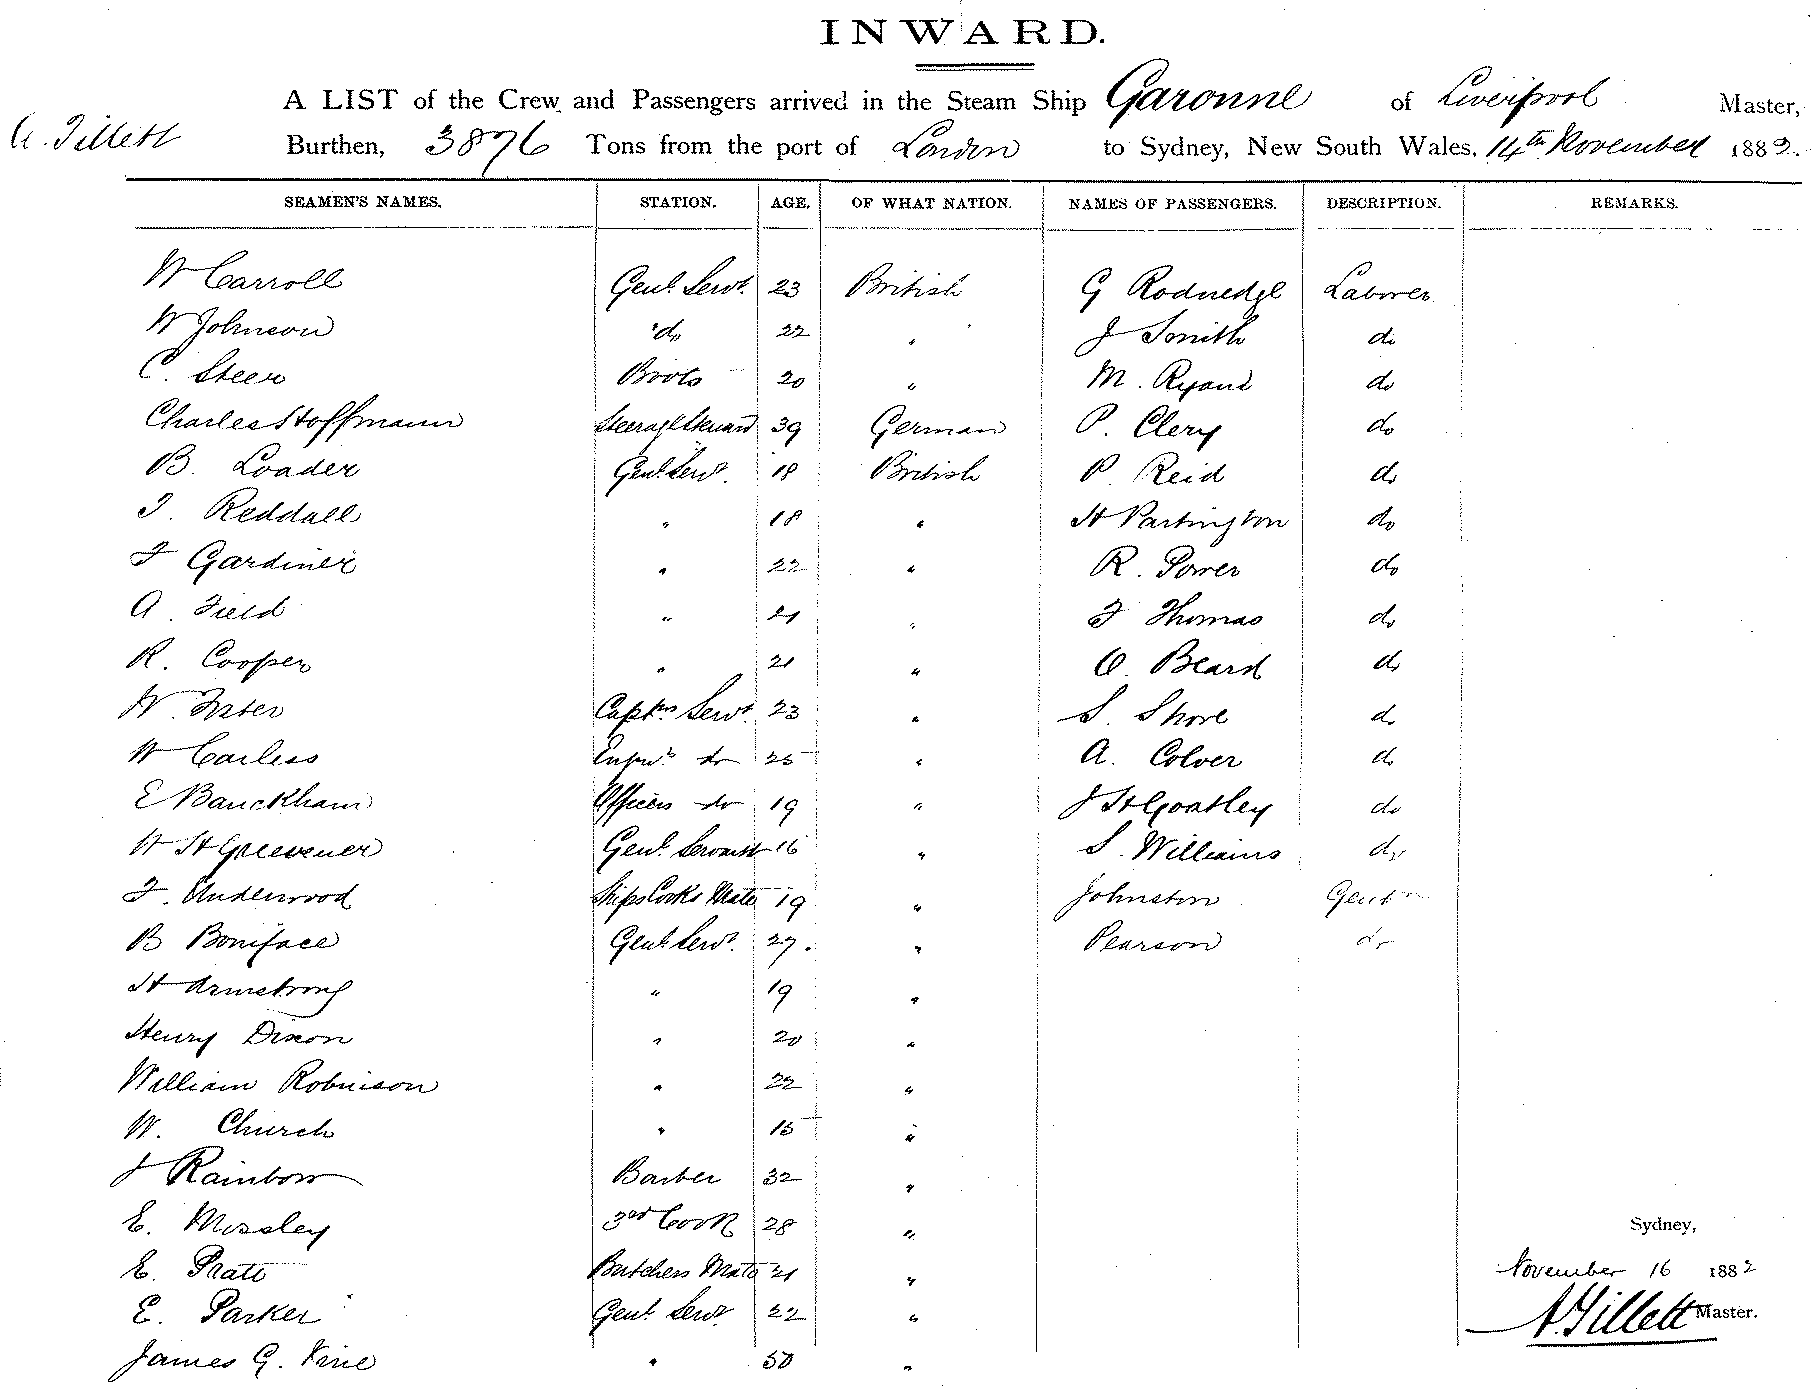 INWARD.
A LIST of the Crew and Passengers arrived in the Steam Ship Garonne of Liverpool Master,
A. Tillett Burthen, 3876 Tons from the port of London to Sydney, New South Wales, 14th November 1882.
SEAMEN'S NAMES. STATION. AGE. OF WHAT NATION. NAMES OF PASSENGERS. DESCRIPTION. REMARKS.
W Carroll Genl. Servt. 23 British G Rodnedge Laborer
W Johnson do 22 " J Smith do
C. Steer Boots 20 " M. Ryans do
Charles Hoffmann Steerage Steward 39 German P. Clery do
B. Loader Genl. Servt. 18 British P Reid do
J. Reddall " 18 " H Partington do
F Gardiner " 22 " R. Power do
A. Field " 21 " F Thomas do
R. Cooper " 21 " O. Beard do
W. Foster Captns Servt. 23 " S. Shore do
W Carless do 25 " A. Colver do
E Banckham Officers do 19 " J H Goatley do
W H Greevener Genl. Servant 16 " S. Williams do
F. Underwood Ships Cooks Mate 19 " Johnston Gentn
B Boniface Genl. Servt. 27. " Pearson do
H Armstrong " 19 "
Henry Dixon " 20 "
William Robinson " 22 "
W. Church " 15 "
J Rainbow Barber 32 "
E. Mossley 3rd Cook 28 "
Sydney,
E. Pratt Butchers Mate 21 " November 16 1882
E. Parker Genl. Servt. 22 " A. Tillett Master.
James G. Vine " 50 "